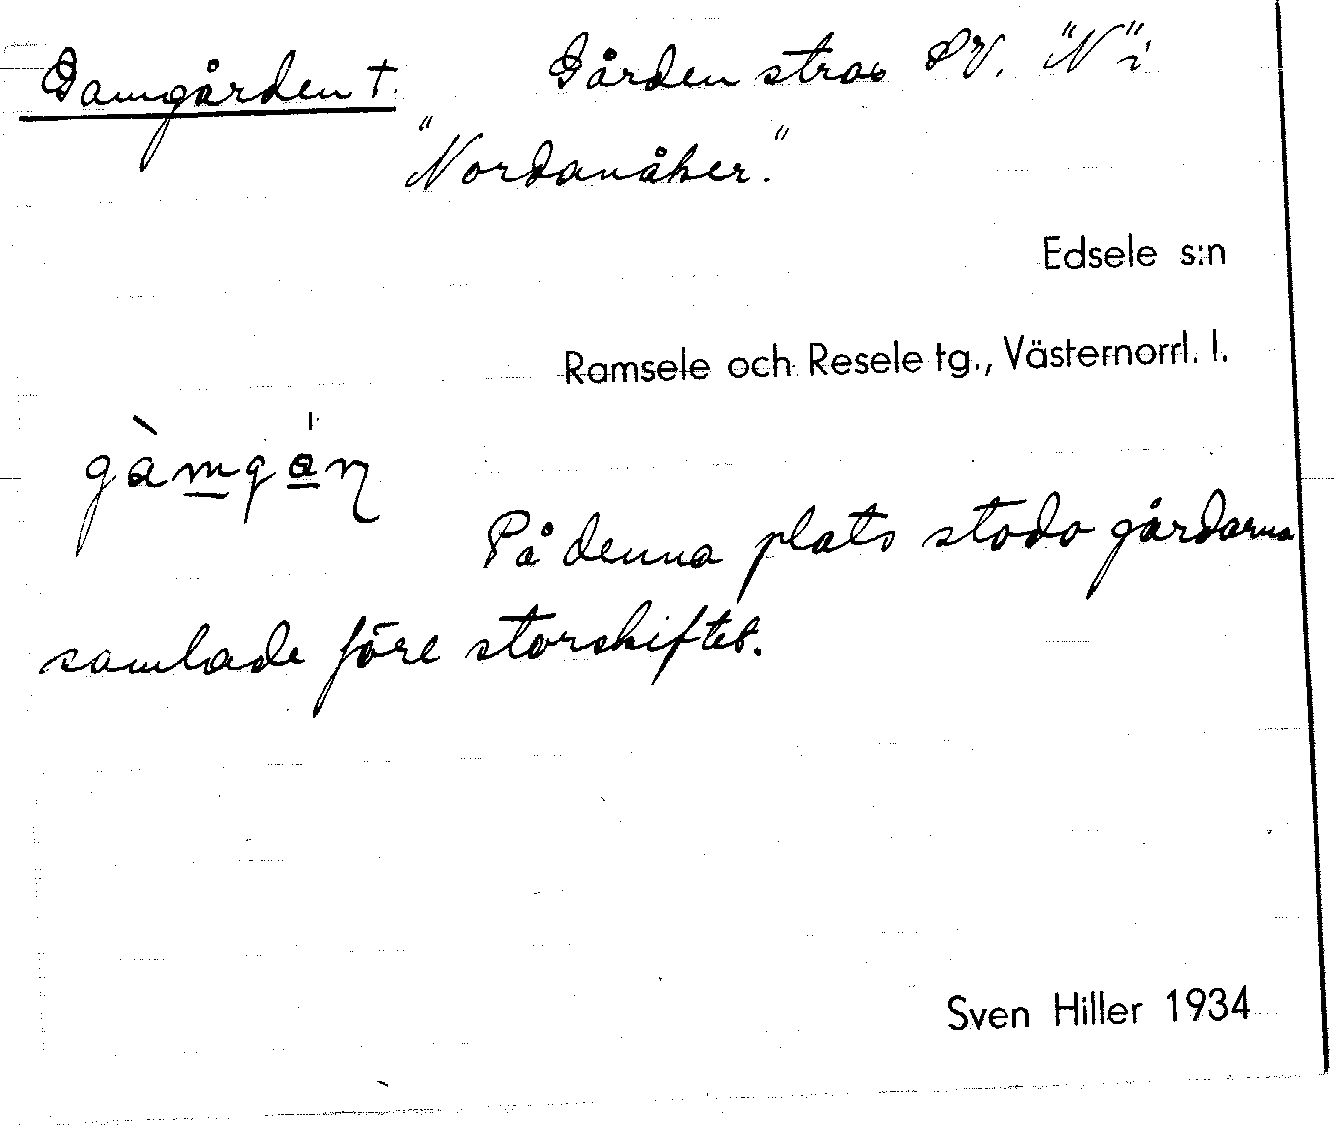 Gamgården †. Gården strax SV. "N" i
"Nordanåker."
Edsele s:n
Ramsele och Resele tg., Västernorrl. l.
gàmgán
På denna plats stodo gårdarna
samlade före storskiftet.
Sven Hiller 1934